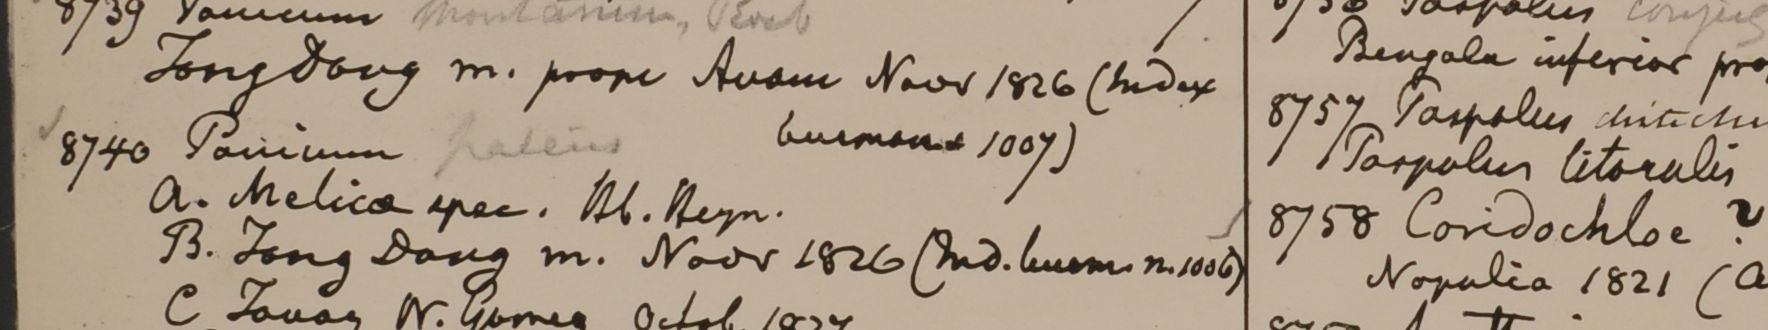 8739 Panicum montanum, Roxb
Tong Dong m. prope Avam Novr 1826 (Index
burman 1007)
8740 Panicum patens
a. Melica spec. Hb. Heyn.
B. Tong Dong m. Novr 1826 (Ind. burm. n. 1006)
C Tavoy W. Gomez Octob. 1827
8756 Paspalus conjug
Bengala inferior pro
8757 Paspalus
Paspalus litoralis
8758 Coridochloe ?
Napalia 1821 (a